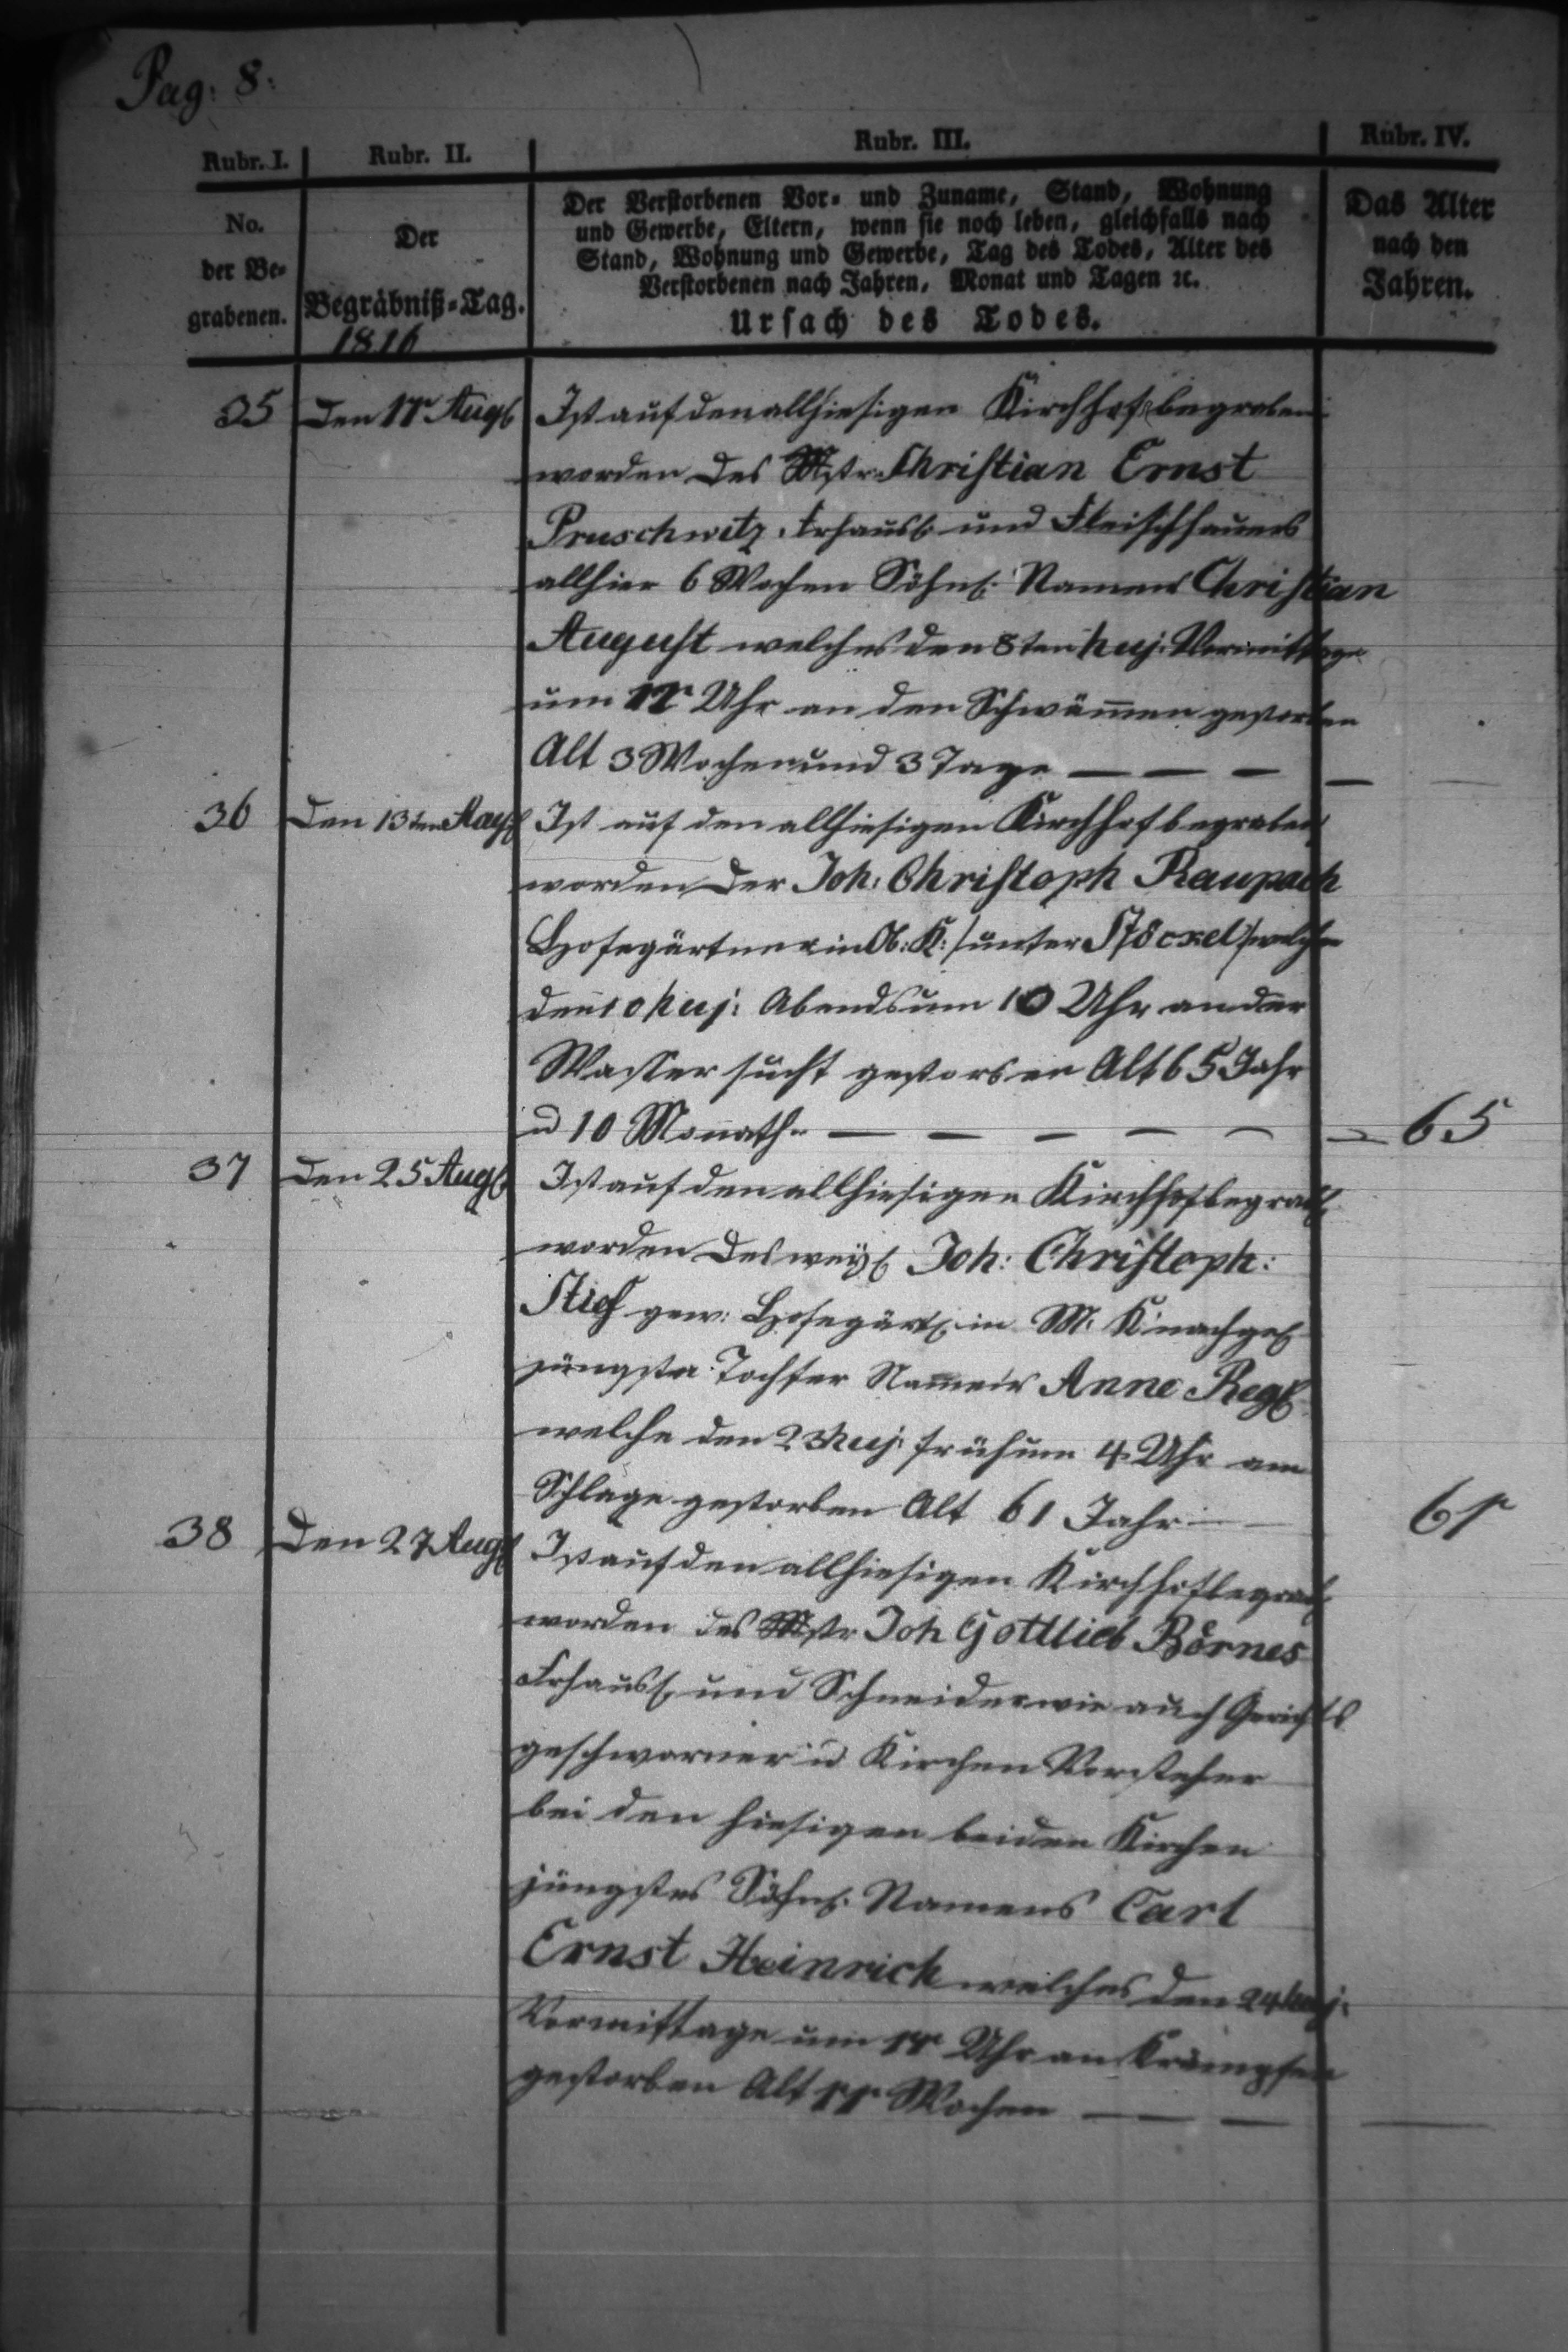 Pag: 8:
Rubr. I. Rubr. II. Rubr. III. Rubr. IV.
No.
der Be-
grabenen.
Der
Begräbniß-Tag.
1816
Der Verstorbenen Vor- und Zuname, Stand, Wohnung
und Gewerbe, Eltern, wenn sie noch leben, gleichfalls nach
Stand, Wohnung und Gewerbe, Tag des Todes, Alter des
Verstorbenen nach Jahren, Monat und Tagen ꝛc.
Ursach des Todes.
Das Alter
nach den
Jahren.
35 Den 11 Augl Ist auf den allhiesigen Kirchhof begraben
worden des Mstr Christian Ernst
Pruschwitz, und Fleischhauers
allhier 6 Wochen Söhnl: Namens Christian
August welches den 8ten huj: Vormittage
um 11 Uhr an den Schwämmen gestorben
Alt 3 Wochen und 3 Tage — — — —
36 Den 13ten Augl Ist auf den allhiesigen Kirchhof begraben
worden der Joh: Christoph Raupach
Hofegärtner in Ob: K: /unter Stöckel/ welcher
den 10 huj: Abends um 10 Uhr an der
Wassersucht gestorben Alt 65 Jahr
u 10 Monathe — — — — — 65
37 Den 25 Augl Ist auf den allhiesigen Kirchhof begrab
worden des weyl Joh: Christoph:
Stief gew: Hofegärtl: in M: K nachgel
jüngste Tochter Namens Anne Regl
welche den 23 huj: früh um 4 Uhr am
Schlage gestorben Alt 61 Jahr — 61
38 Den 27 Augl Ist auf den allhiesigen Kirchhof begrab
worden des Mstr Joh Gottlieb Börnes
und Schneider wie auch Gerichts
geschworner u Kirchen Vorsteher
bei den hiesigen beiden Kirchen
jüngstes Söhnl: Namens Carl
Ernst Heinrich welches den 24 huj:
Vormittage um 11 Uhr an Krämpfen
gestorben Alt 11 Wochen — — —